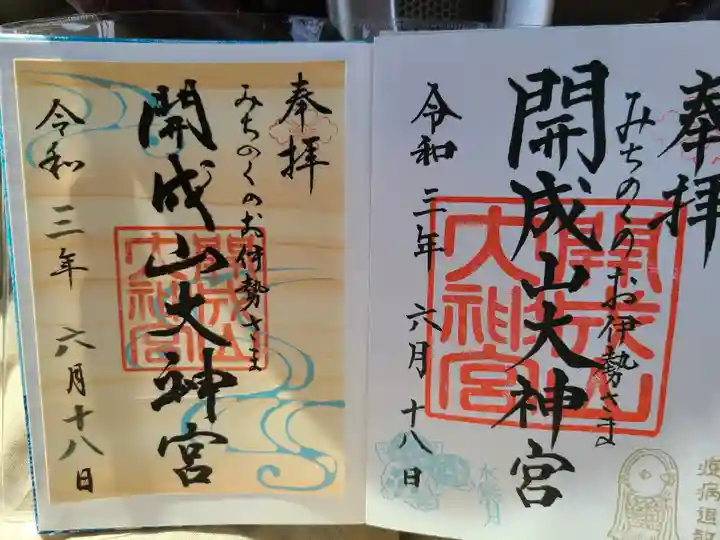 奉拝
みちのくのお伊勢さま
開成山大神宮
開成山
大神宮
令和三年六月十八日
奉拝
みちのくのお伊勢さま
開成山大神宮
開成山
大神宮
令和三年六月十八日
水無月
疫病退散